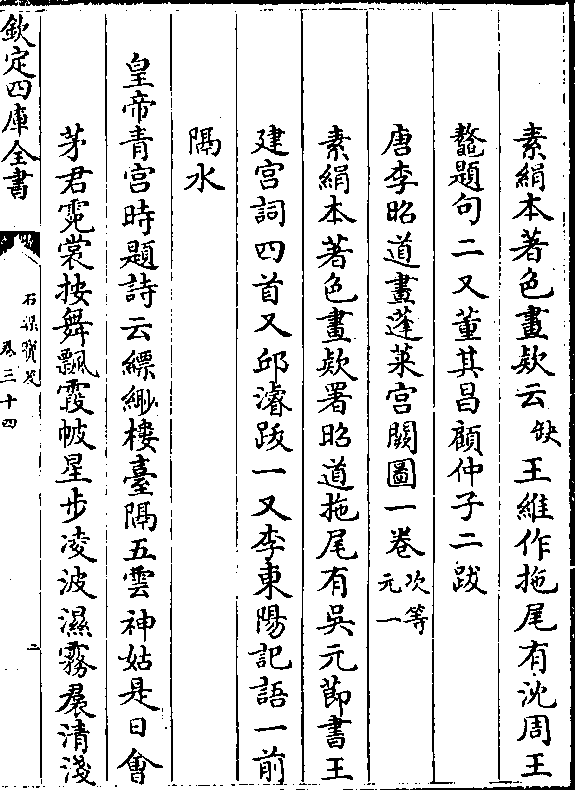 素絹本著色畫欵云缺王維作拖尾有沈周王
鰲題句二又董其昌顧仲子二跋
唐李昭道畫蓬萊宫闕圖一卷次等元一
素絹本著色畫欵署昭道拖尾有吳元節書王
建宫詞四首又邱濬跋一又李東陽記語一前
隔水
皇帝青宫時題詩云縹緲樓臺隔五雲神姑是日會
茅君霓裳按舞飄霞帔星步凌波濕霧裠清淺
欽定四庫全書
石渠寶笈
卷三十四
二